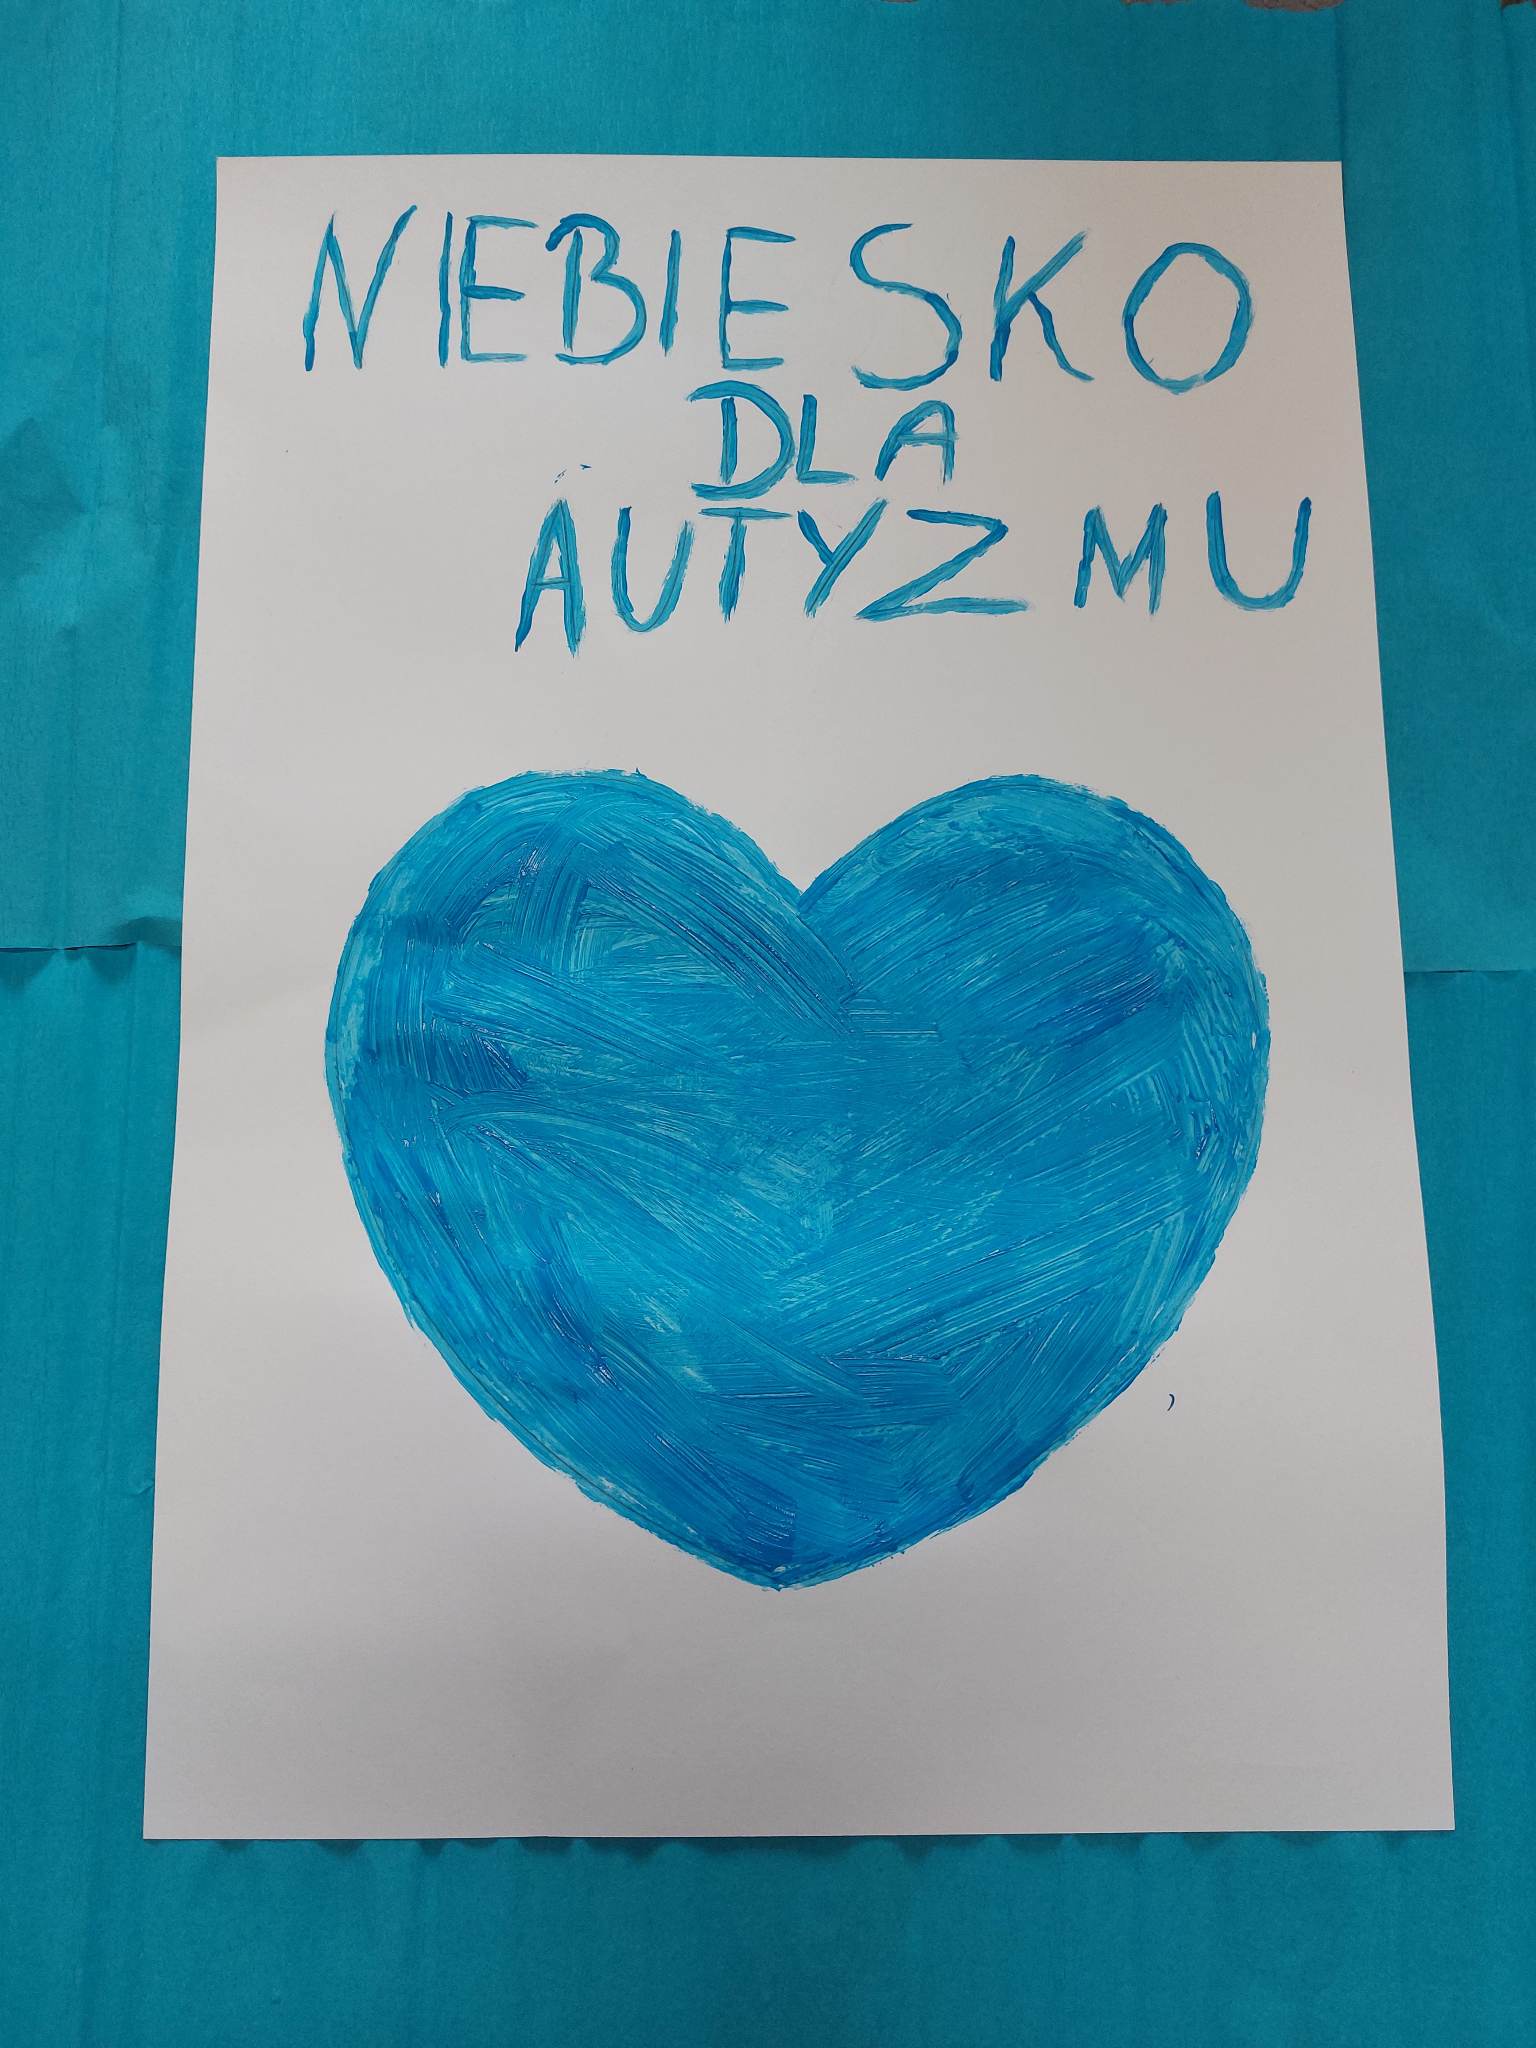 NIEBIESKO
DLA
AUTYZMU